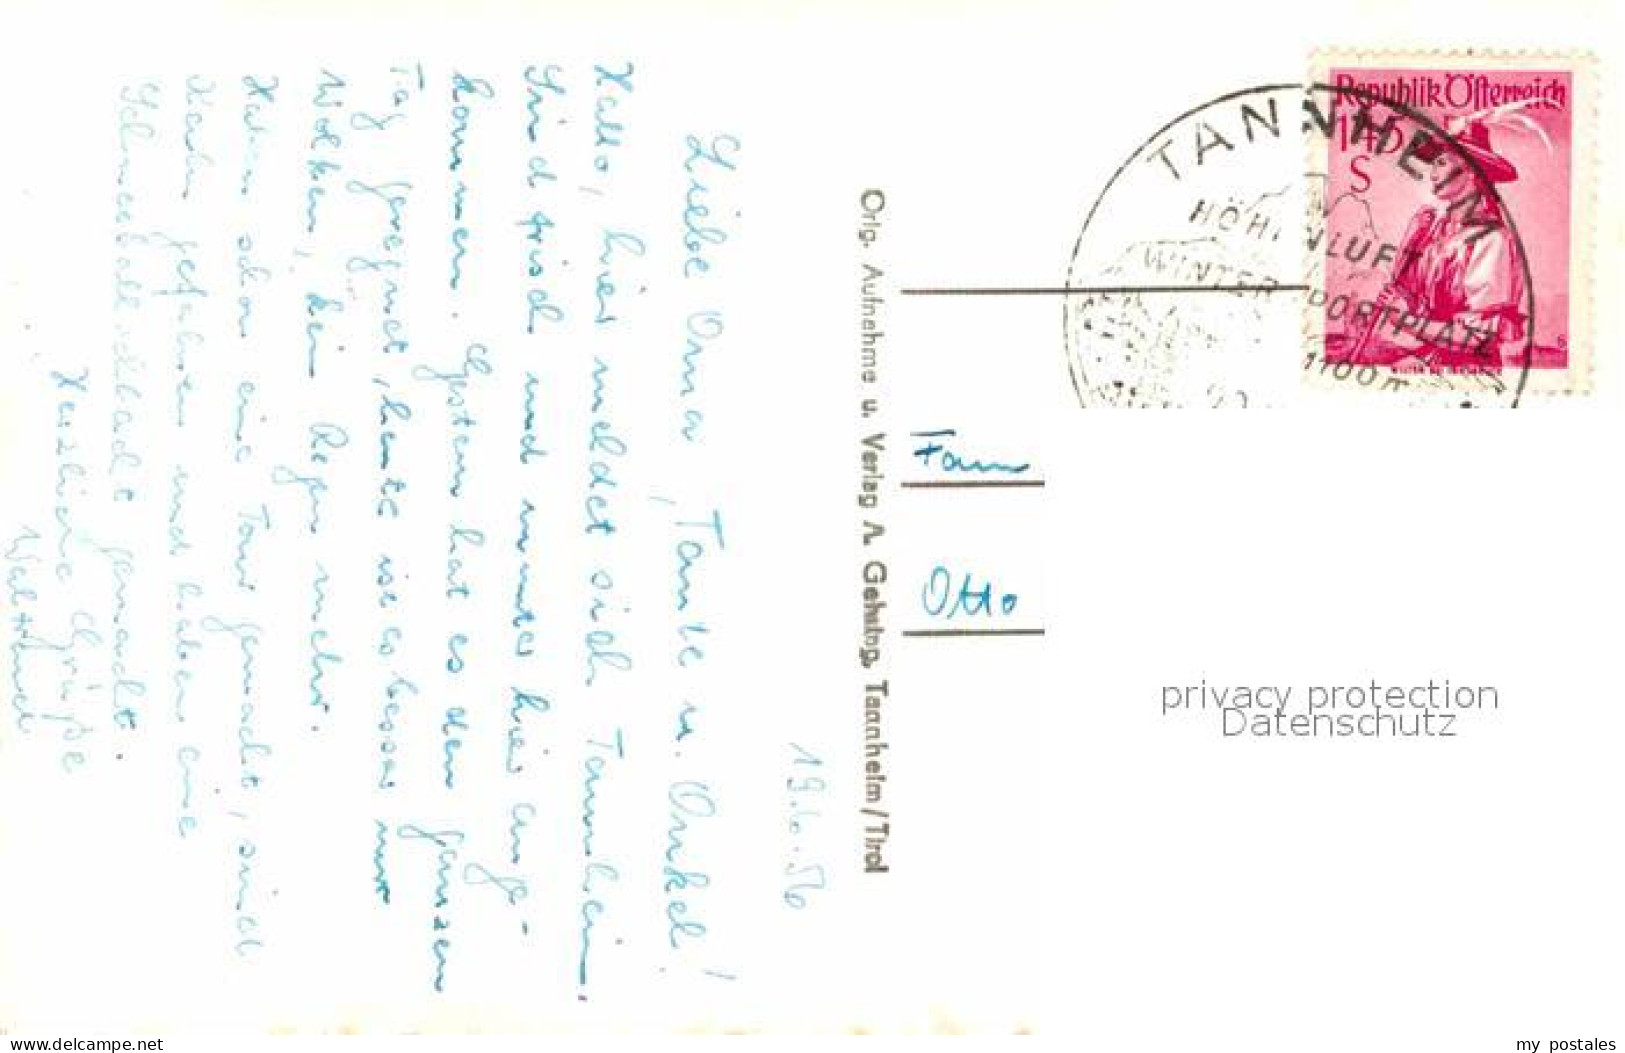 19.6.56
Liebe Oma, Tante u. Onkel!
Hallo, hier meldet sich Tannheim,
Sind frisch und munter hier ange-
kommen. Gestern hat es den ganzen
Tag geregnet, heute ist es besser nur
Wolken, kein Regen mehr.
Haben schon eine Tour gemacht, sind
gefahren und haben eine
Schneeballschlacht gemacht.
Herzliche Grüße
Waltraud
Orig. Aufnahme u. Verlag A. Gehring, Tannheim/Tirol
Republik Österreich
S
TANNHEIM
HÖHENLUFT
WINTERSPORTPLATZ
1100 m
Fam
Otto
privacy protection
Datenschutz
www.ansichtskarten-center.de
my_postales